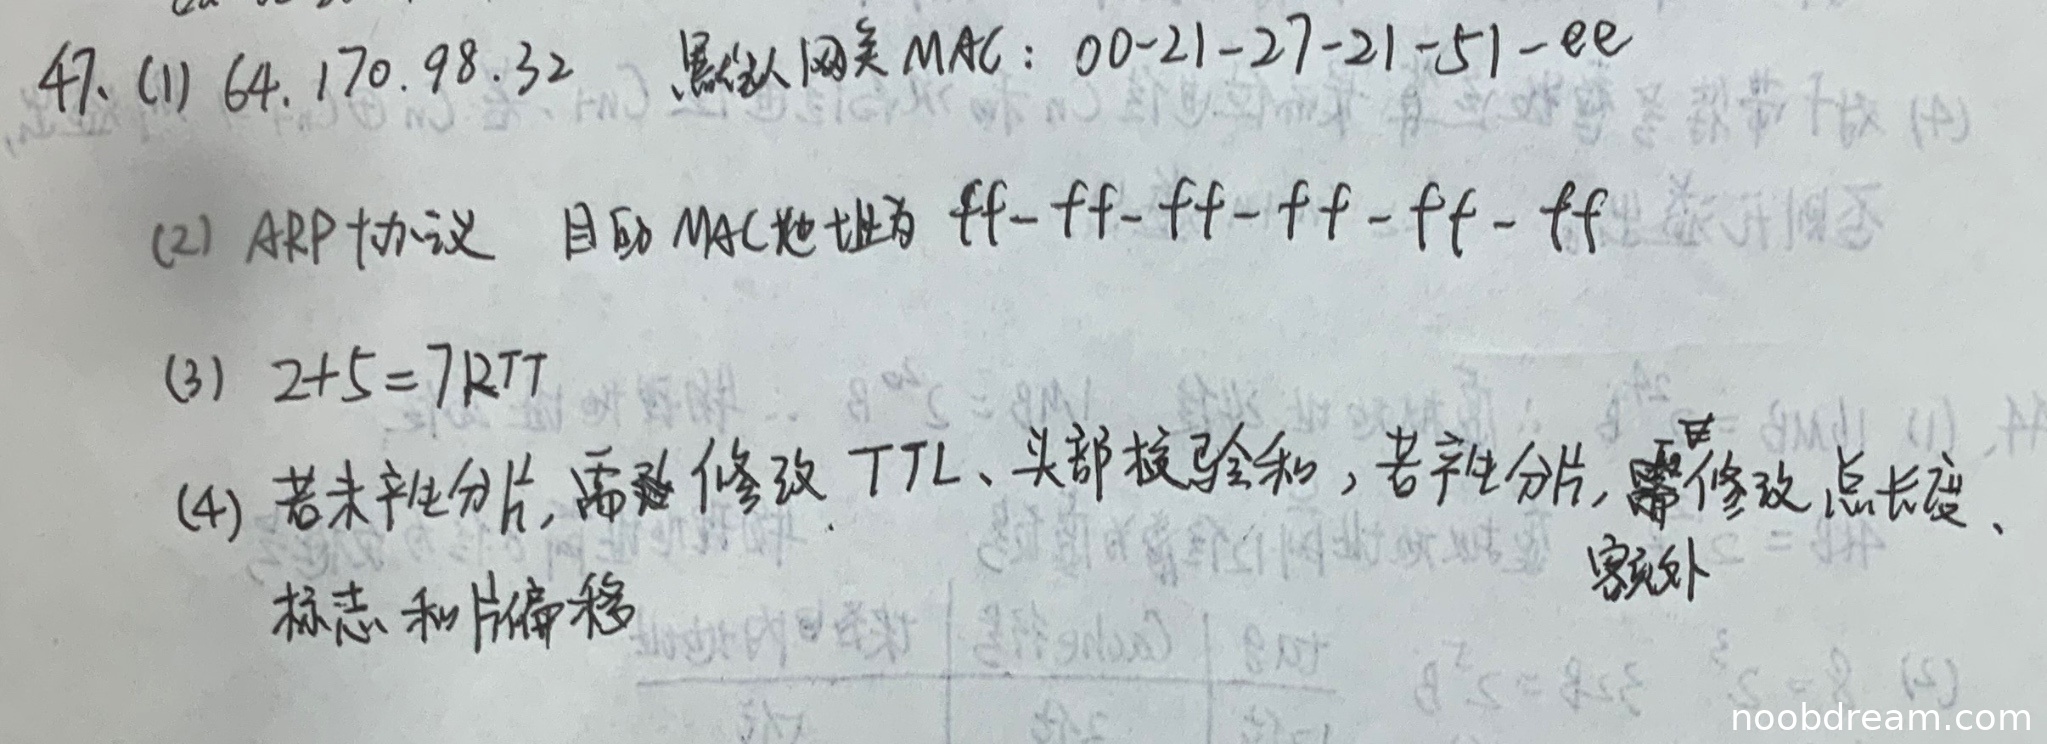 47. (1) 64.170.98.32 默认网关MAC: 00-21-27-21-51-ee
(2) ARP协议 目的MAC地址为 ff-ff-ff-ff-ff-ff
(3) 2+5=7RTT
(4) 若未产生分片,需 修改 TTL、头部校验和,若产生分片,需修改总长度、
额外
标志和片偏移
noobdream.com